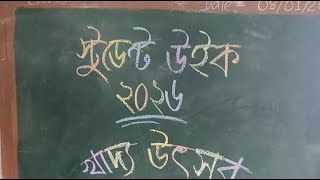 Date- 08/01/2
স্টুডেন্ট উইক
২০২৬
খাদ্য উৎসব